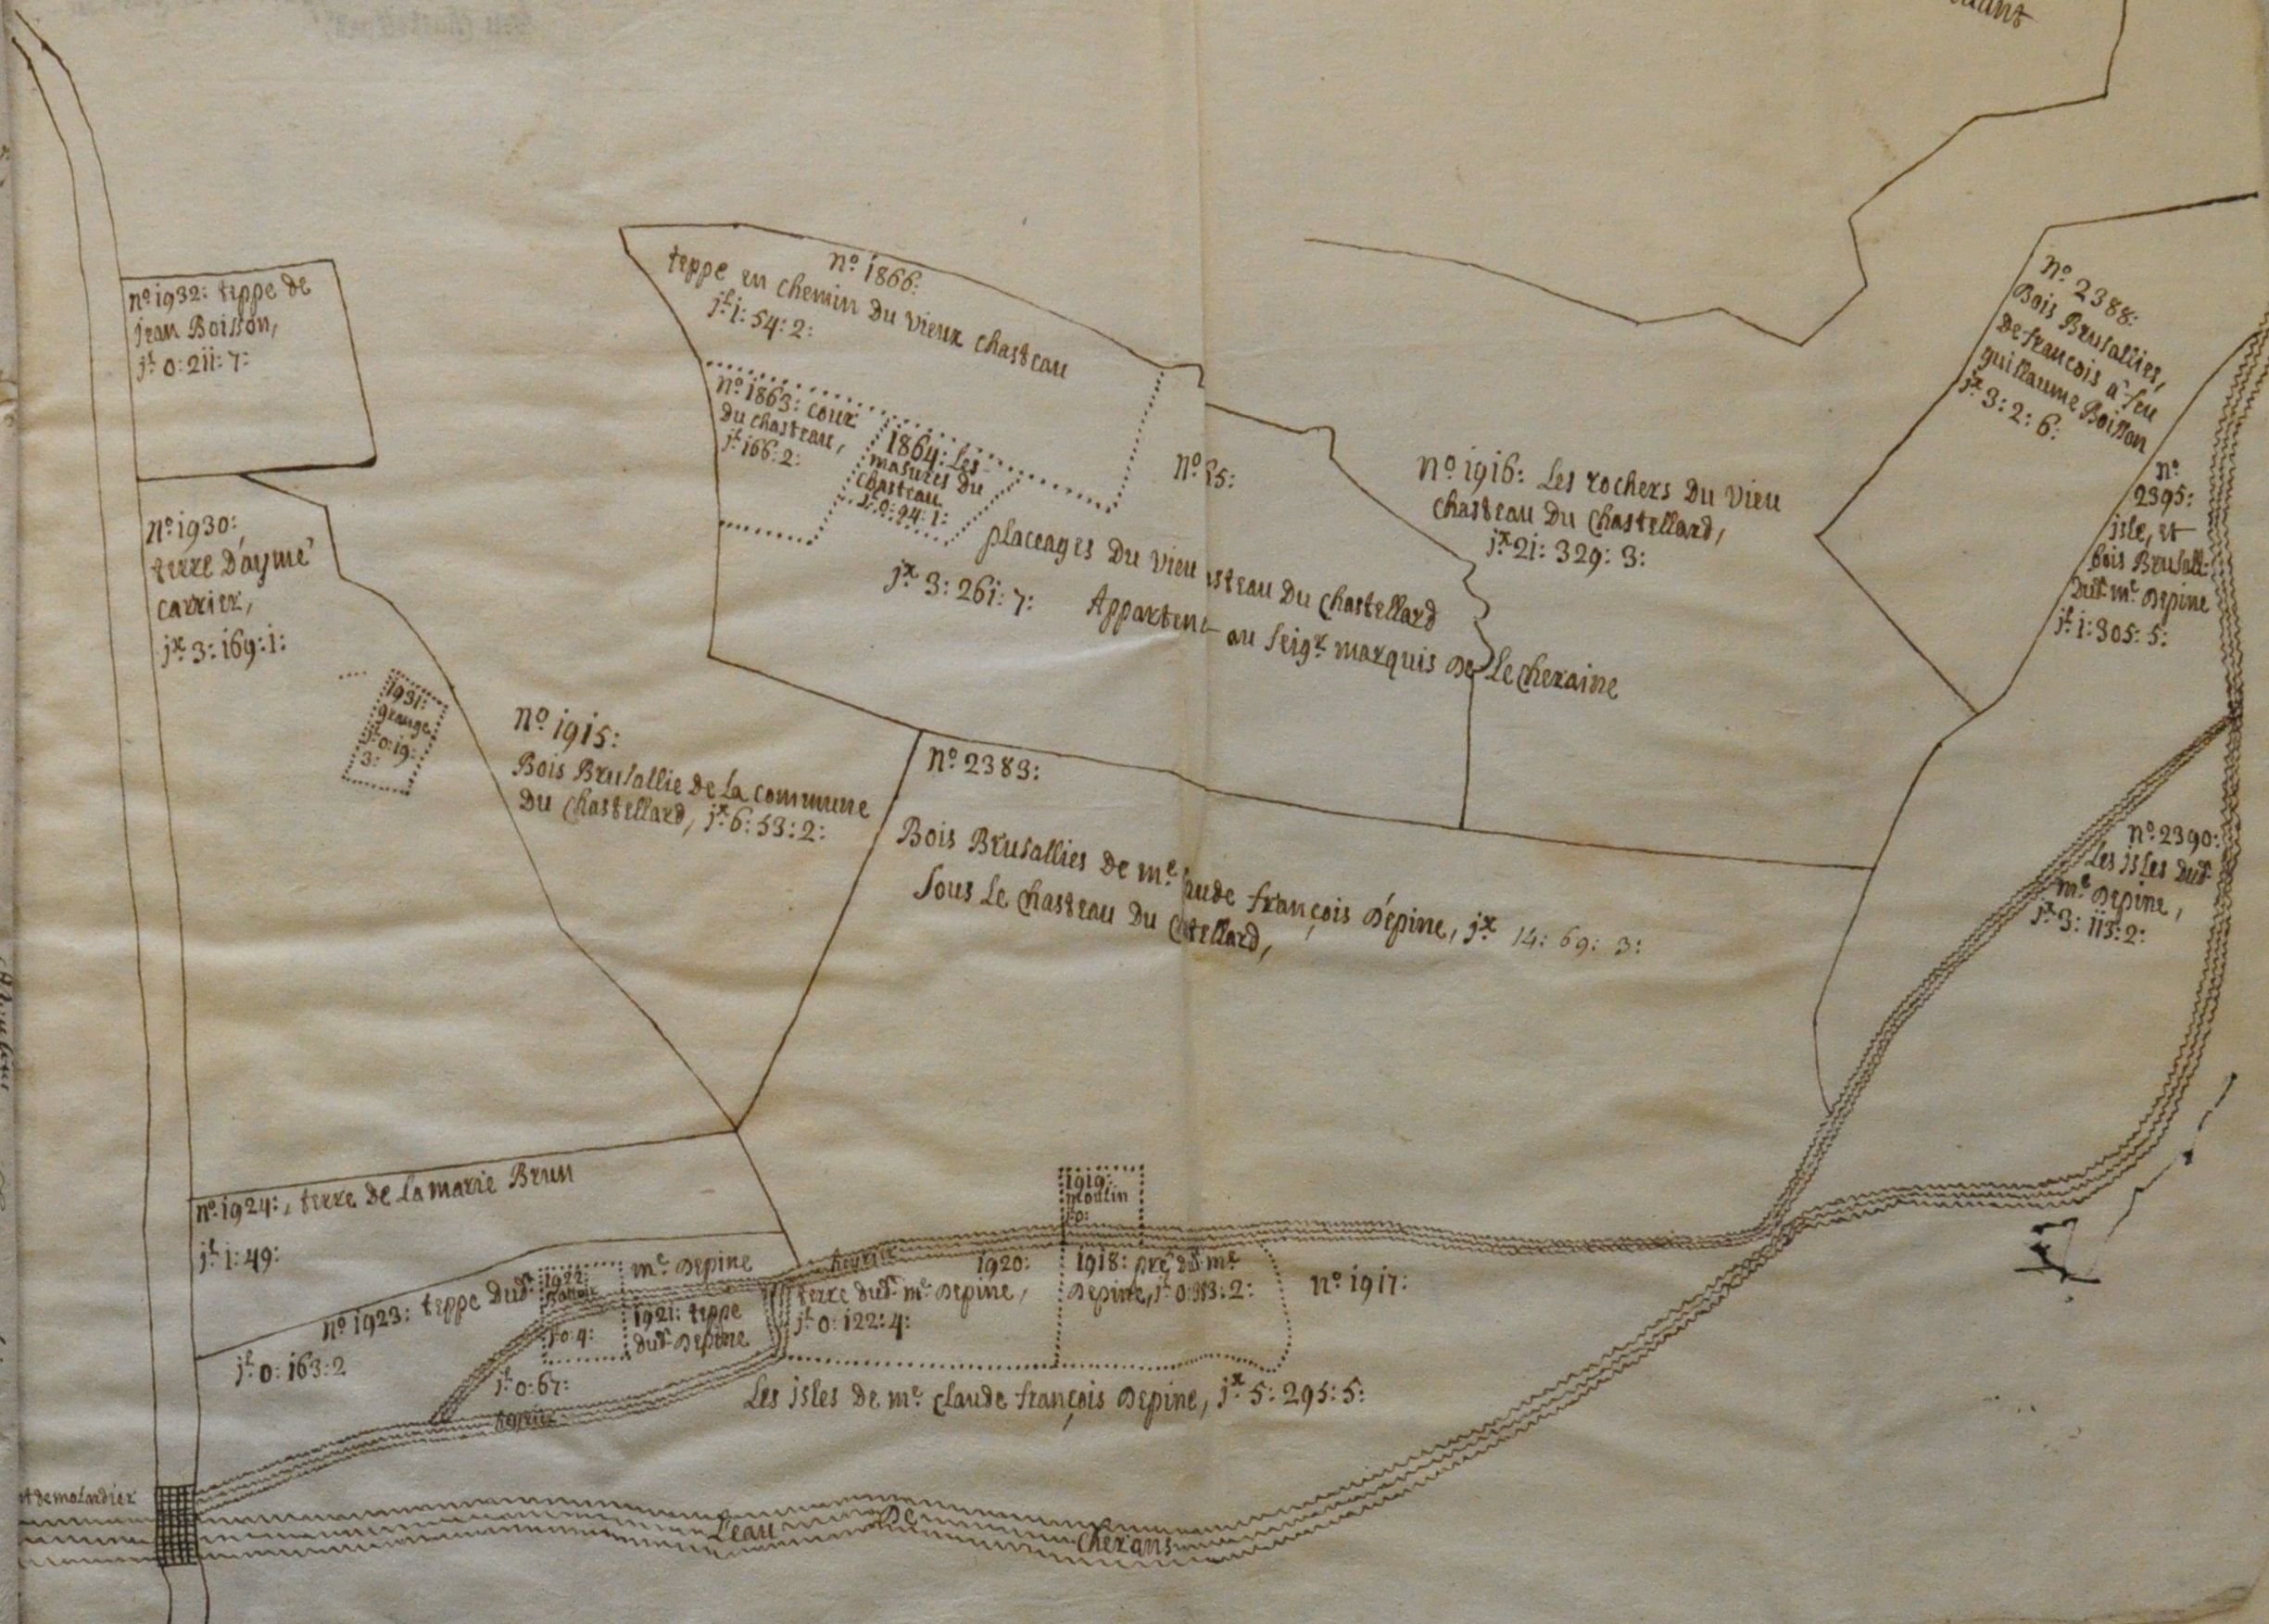 n.o 1932: teppe de
jean Boisson,
j.l 0: 211: 7:
n.o 1930:
terre D'aymé
carrier,
j.x 3: 169: 1:
1931:
grange
j.l 0: 19:
3:
n.o 1866:
teppe en chemin du vieux chasteau
j.l 1: 54: 2:
n.o 1863: cour
du chasteau,
j.l 166: 2:
1864: Les
masures du
chasteau
j.l 0: 94: 1:
placeages Du vieu steau Du chastellard
j.x 3: 261: 7: Appartent au seigr. marquis de Lecheraine
n.o 1916: Les rochers Du vieu
chasteau Du chastellard,
j.x 21: 329: 3:
n.o 2388:
Bois Brusallies,
de françois à feu
guillaume Boisson
j.x 3: 2: 6:
n.o
2395:
isle, et
bois Brusall:
dud.t m.e Depine
j.l 1: 305: 5:
n.o 1915:
Bois Brusallie de La commune
Du chastellard, j.x 6: 53: 2:
n.o 2383:
Bois Brusallies de m.e aude françois D'épine, j.x 14: 69: 3:
sous Le chasteau du tellard,
n.o 2390:
Les isles dud.t
m.e Depine,
j.x 3: 113: 2:
n.o 1924: terre de La marie Brun
j.l 1: 49:
n.o 1923: teppe dud.t m.e Depine
j.l 0: 163: 2
1922:
j.l 0 4:
1921: teppe
dud.t Depine
j.l 0: 67:
1919:
moulin
j.l 0:
1920:
terre dud.t m.e Depine,
j.l 0: 122: 4:
1918: pré dud.t m.e
Depine, j.l 0: 2:
n.o 1917:
Les isles de m.e claude françois Depine, j.x 5: 295: 5:
L'eau De Cherans